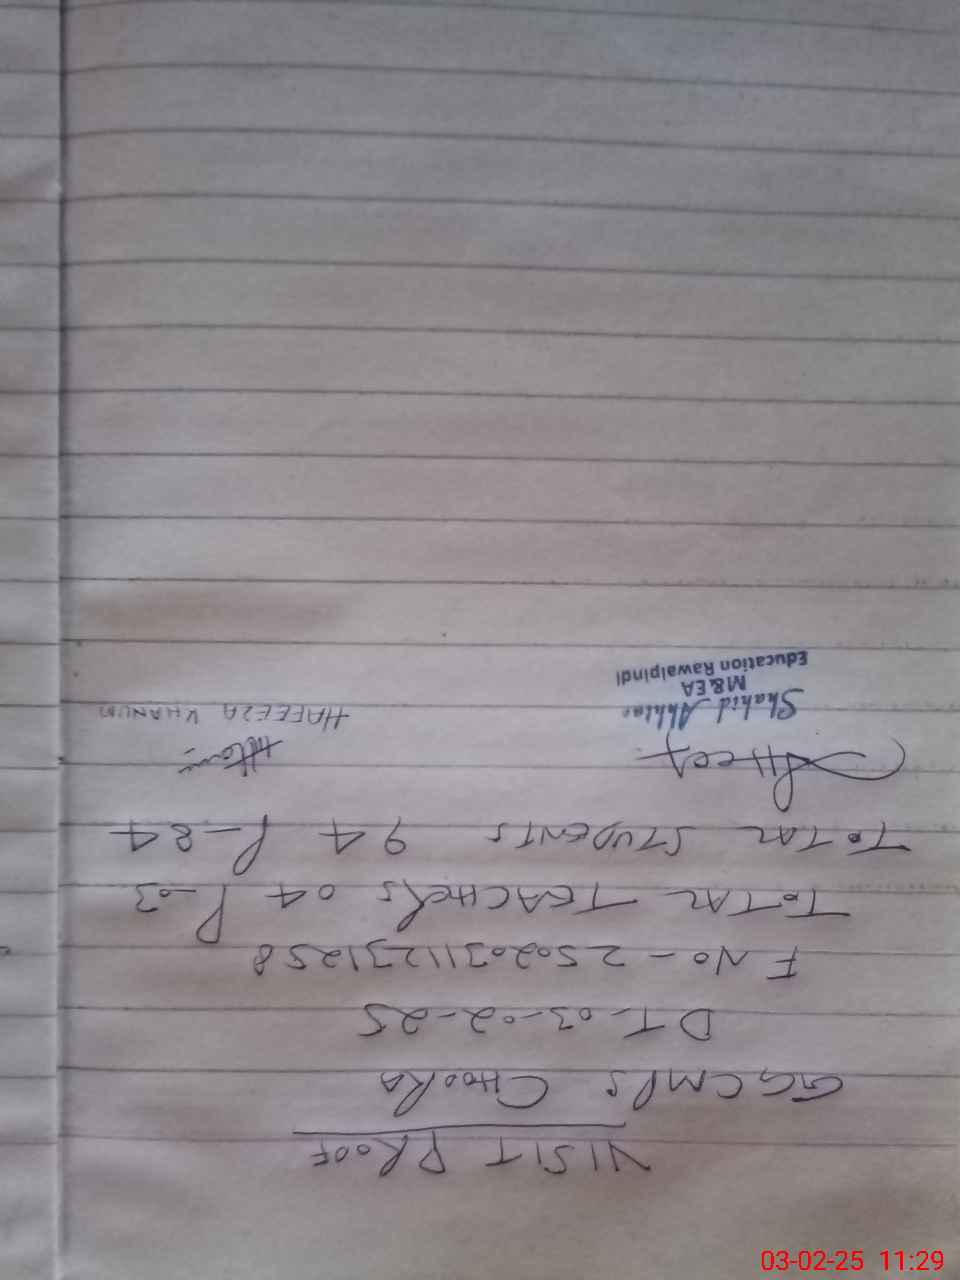 VISIT PROOF
GGCMPS CHOORA
DT-03-02-25
F NO-25020311231258
TOTAL TEACHERS 04 P-03
TOTAL STUDENTS 94 P-84
Shahid Akhtar
M&EA
Education Rawalpindi
HAFEEZA KHANUM
03-02-25 11:29